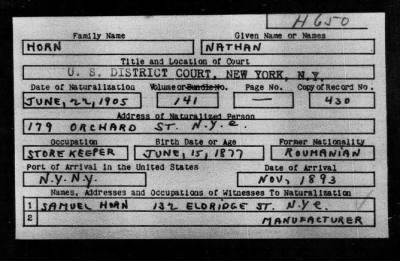 H650
Family Name Given Name or Names
HORN NATHAN
Title and Location of Court
U. S. DISTRICT COURT, NEW YORK, N.Y.
Date of Naturalization Volume or Bundle No. Page No. Copy of Record No.
JUNE, 22, 1905 141 — 430
Address of Naturalized Person
179 ORCHARD ST. N.Y.C.
Occupation Birth Date or Age Former Nationality
STORE KEEPER JUNE, 15, 1877 ROUMANIAN
Port of Arrival in the United States Date of Arrival
N.Y. N.Y. NOV, 1893
Names, Addresses and Occupations of Witnesses To Naturalization
1 SAMUEL HORN 132 ELDRIDGE ST. N.Y.C.
2 MANUFACTURER